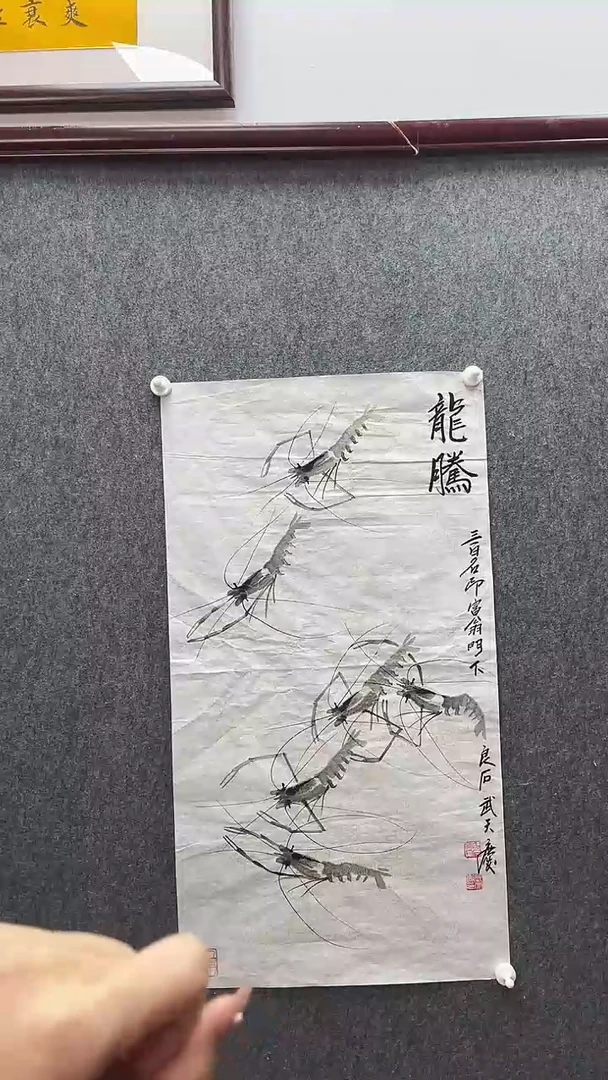 衰爽
龍騰
三百石印富翁門下
良石武天慶